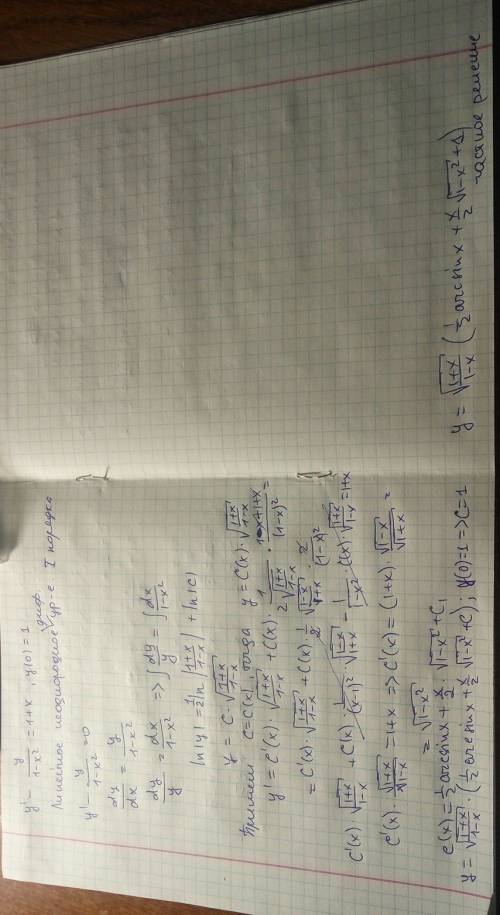 y' - y/(1-x²) = 1+x, y(0)=1
Линейное неоднородное диф. ур-е I порядка
y' - y/(1-x²) = 0
dy/dx = y/(1-x²)
dy/y = dx/(1-x²) => ∫dy/y = ∫dx/(1-x²)
ln|y| = 1/2 ln|(1+x)/(1-x)| + ln|C|
y = C·√(1+x)/(1-x)
Примем C=C(x), тогда y = C(x)·√(1+x)/(1-x)
y' = C'(x)·√(1+x)/(1-x) + C(x)·1/(2√(1+x)/(1-x))·(1-x+1+x)/(1-x)² =
= C'(x)·√(1+x)/(1-x) + C(x)·1/2·√(1-x)/(1+x)·2/(1-x)²
C'(x)·√(1+x)/(1-x) + C(x)·1/(x-1)²·√(1-x)/(1+x) - 1/(1-x²)·C(x)·√(1+x)/(1-x) = 1+x
C'(x)·√(1+x)/(1-x) = 1+x => C'(x) = (1+x)·√(1-x)/√(1+x) =
= √(1-x²)
C(x) = 1/2 arcsinx + x/2·√(1-x²) + C₁
y = √(1+x)/(1-x)·(1/2 arcsinx + x/2 √(1-x²) + C); y(0)=1 => C=1
y = √(1+x)/(1-x) (1/2 arcsinx + x/2 √(1-x²) + 1)
частное решение